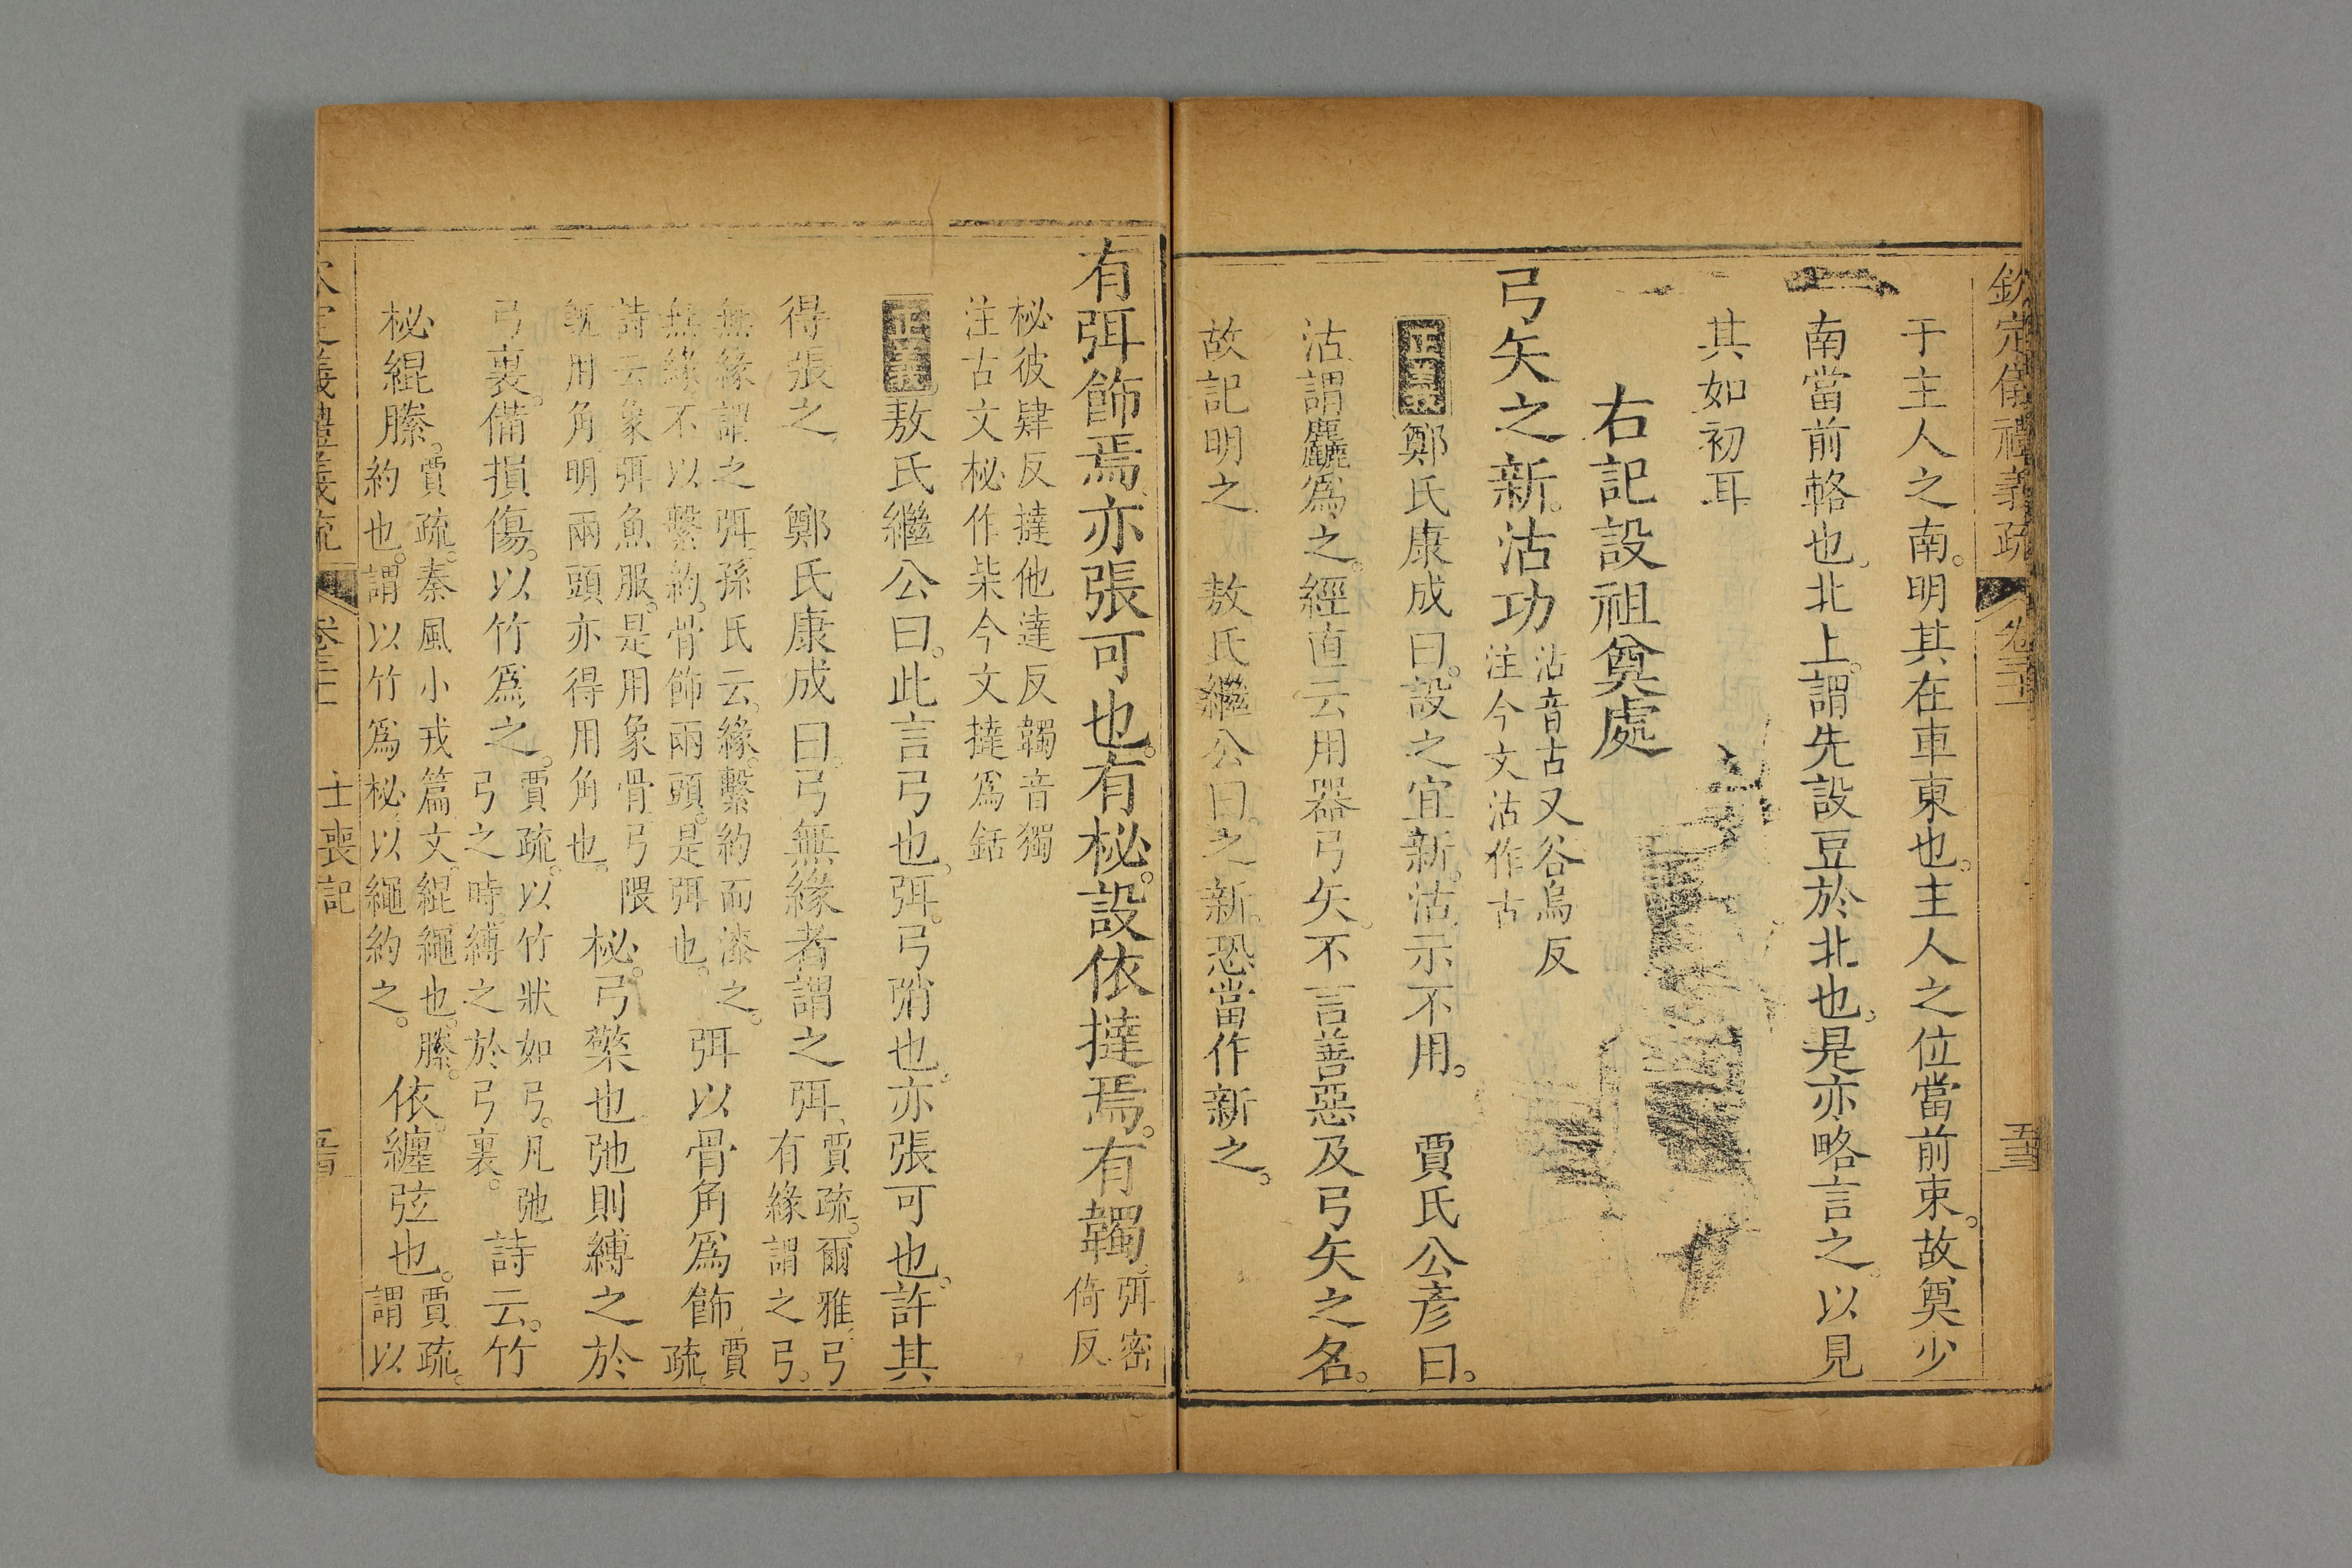 欽定儀禮義疏 卷三十 五三
于主人之南。明其在車東也。主人之位當前束。故奠少
南當前輅也。北上。謂先設豆於北也。是亦略言之。以見
其如初耳
右記設祖奠處
弓矢之新。沽功
沽音古又谷烏反
注今文沽作古
正義 鄭氏康成曰。設之宜新。沽示不用。 賈氏公彥曰。
沽謂麤爲之。經直云用器弓矢。不言善惡及弓矢之名。
故記明之 敖氏繼公曰。之新。恐當作新之。
有弭飾焉。亦張可也。有柲。設依撻焉。有韣。
弭密
倚反
柲彼肄反撻他達反韣音獨
注古文柲作柴今文撻爲銛
正義 敖氏繼公曰。此言弓也。弭。弓弰也。亦張可也。許其
得張之。 鄭氏康成曰。弓無緣者謂之弭。
賈疏。爾雅。弓
有緣謂之弓。
無緣謂之弭。孫氏云。緣。繫約而漆之。
無緣。不以繫約。骨飾兩頭。是弭也。
弭以骨角爲飾
賈
疏。
詩云象弭魚服。是用象骨弓隈
旣用角。明兩頭亦得用角也。
柲。弓檠也。弛則縛之於
弓裏。備損傷。以竹爲之。
賈疏。以竹狀如弓。凡弛
弓之時。縛之於弓裏。
詩云。竹
柲緄縢。
賈疏。秦風小戎篇文。緄。繩也。縢。
約也。謂以竹爲柲。以繩約之。
依。纏弦也。
賈疏。
謂以
欽定儀禮義疏 卷三十 士喪記